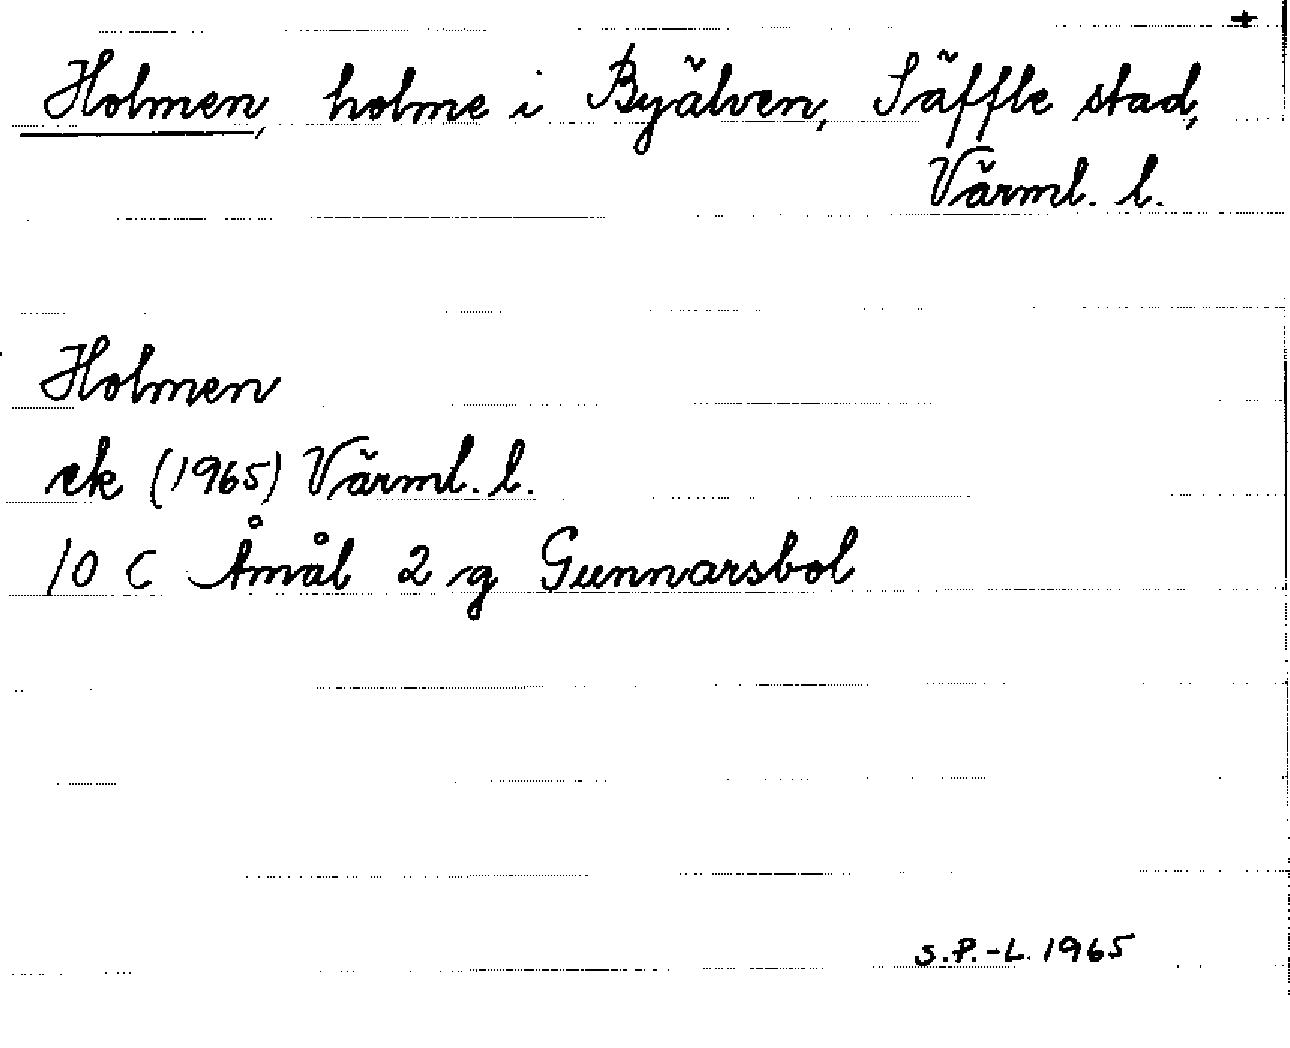 +
Holmen, holme i Byälven, Säffle stad,
Värml. l.
Holmen
ek (1965) Värml. l.
10 C Åmål 2 g Gunnarsbol
S.P.-L. 1965